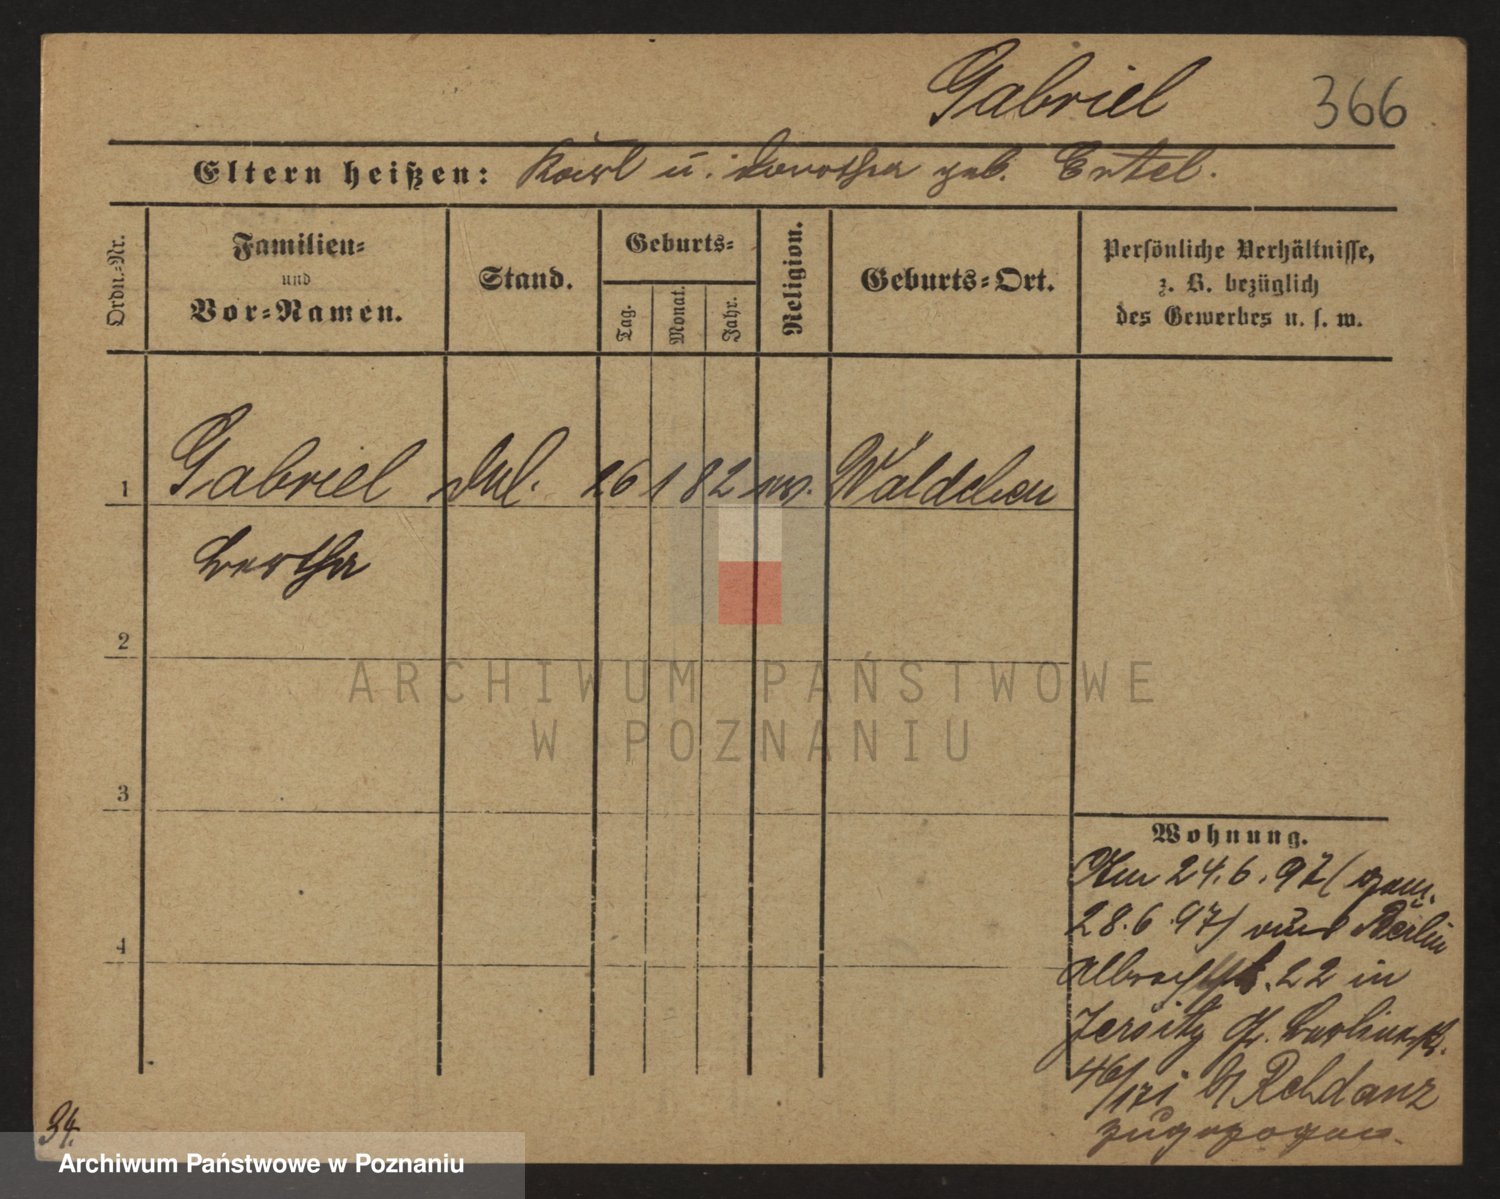 Gabriel 366
Eltern heißen: Karl u. Dorothea geb. Ertel.
Ordn.-Nr.
Familien-
und
Vor-Namen.
Stand.
Geburts-
Tag.
Monat.
Jahr.
Religion.
Geburts-Ort.
Persönliche Verhältnisse,
z. B. bezüglich
des Gewerbes u. s. w.
1 Gabriel 26 1 82 ev. Wäldchen
Bertha
2
ARCHIWUM PAŃSTWOWE
W POZNANIU
3
4
Wohnung.
Am 24.6.97 ( gem.
28.6.97) aus Berlin
Albrechtstr. 22 in
Jersitz Gr. Berlinerstr.
46/171 b/ Rehdanz
zugezogen.
34.
Archiwum Państwowe w Poznaniu